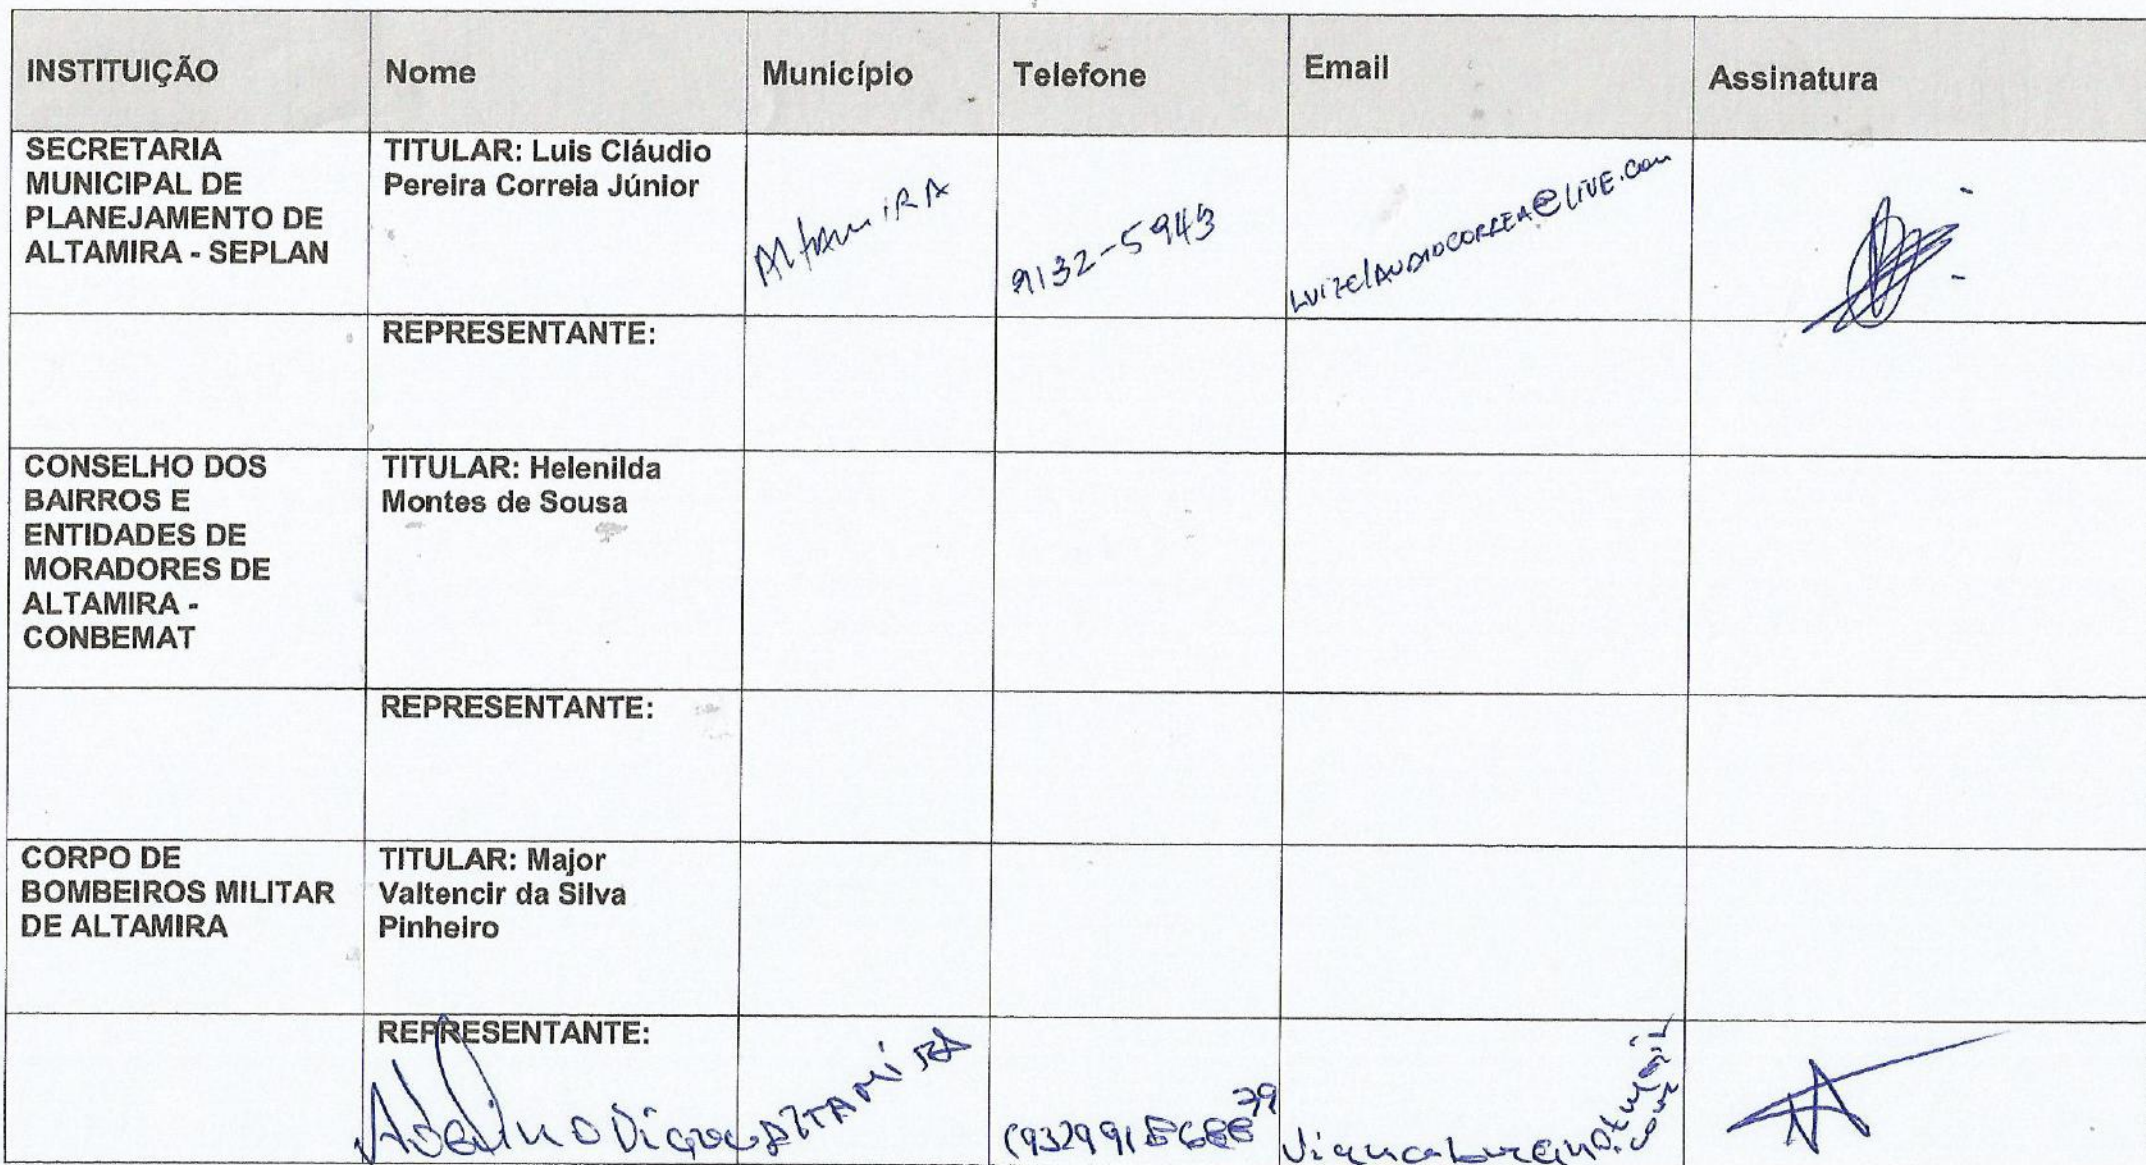 INSTITUIÇÃO Nome Município Telefone Email Assinatura
SECRETARIA
MUNICIPAL DE
PLANEJAMENTO DE
ALTAMIRA - SEPLAN
TITULAR: Luis Cláudio
Pereira Correia Júnior
AltamiRA
9132-5943
LuizclAUDIOCORREA@LIVE.com
REPRESENTANTE:
CONSELHO DOS
BAIRROS E
ENTIDADES DE
MORADORES DE
ALTAMIRA -
CONBEMAT
TITULAR: Helenilda
Montes de Sousa
REPRESENTANTE:
CORPO DE
BOMBEIROS MILITAR
DE ALTAMIRA
TITULAR: Major
Valtencir da Silva
Pinheiro
REPRESENTANTE:
ALTAMiRA